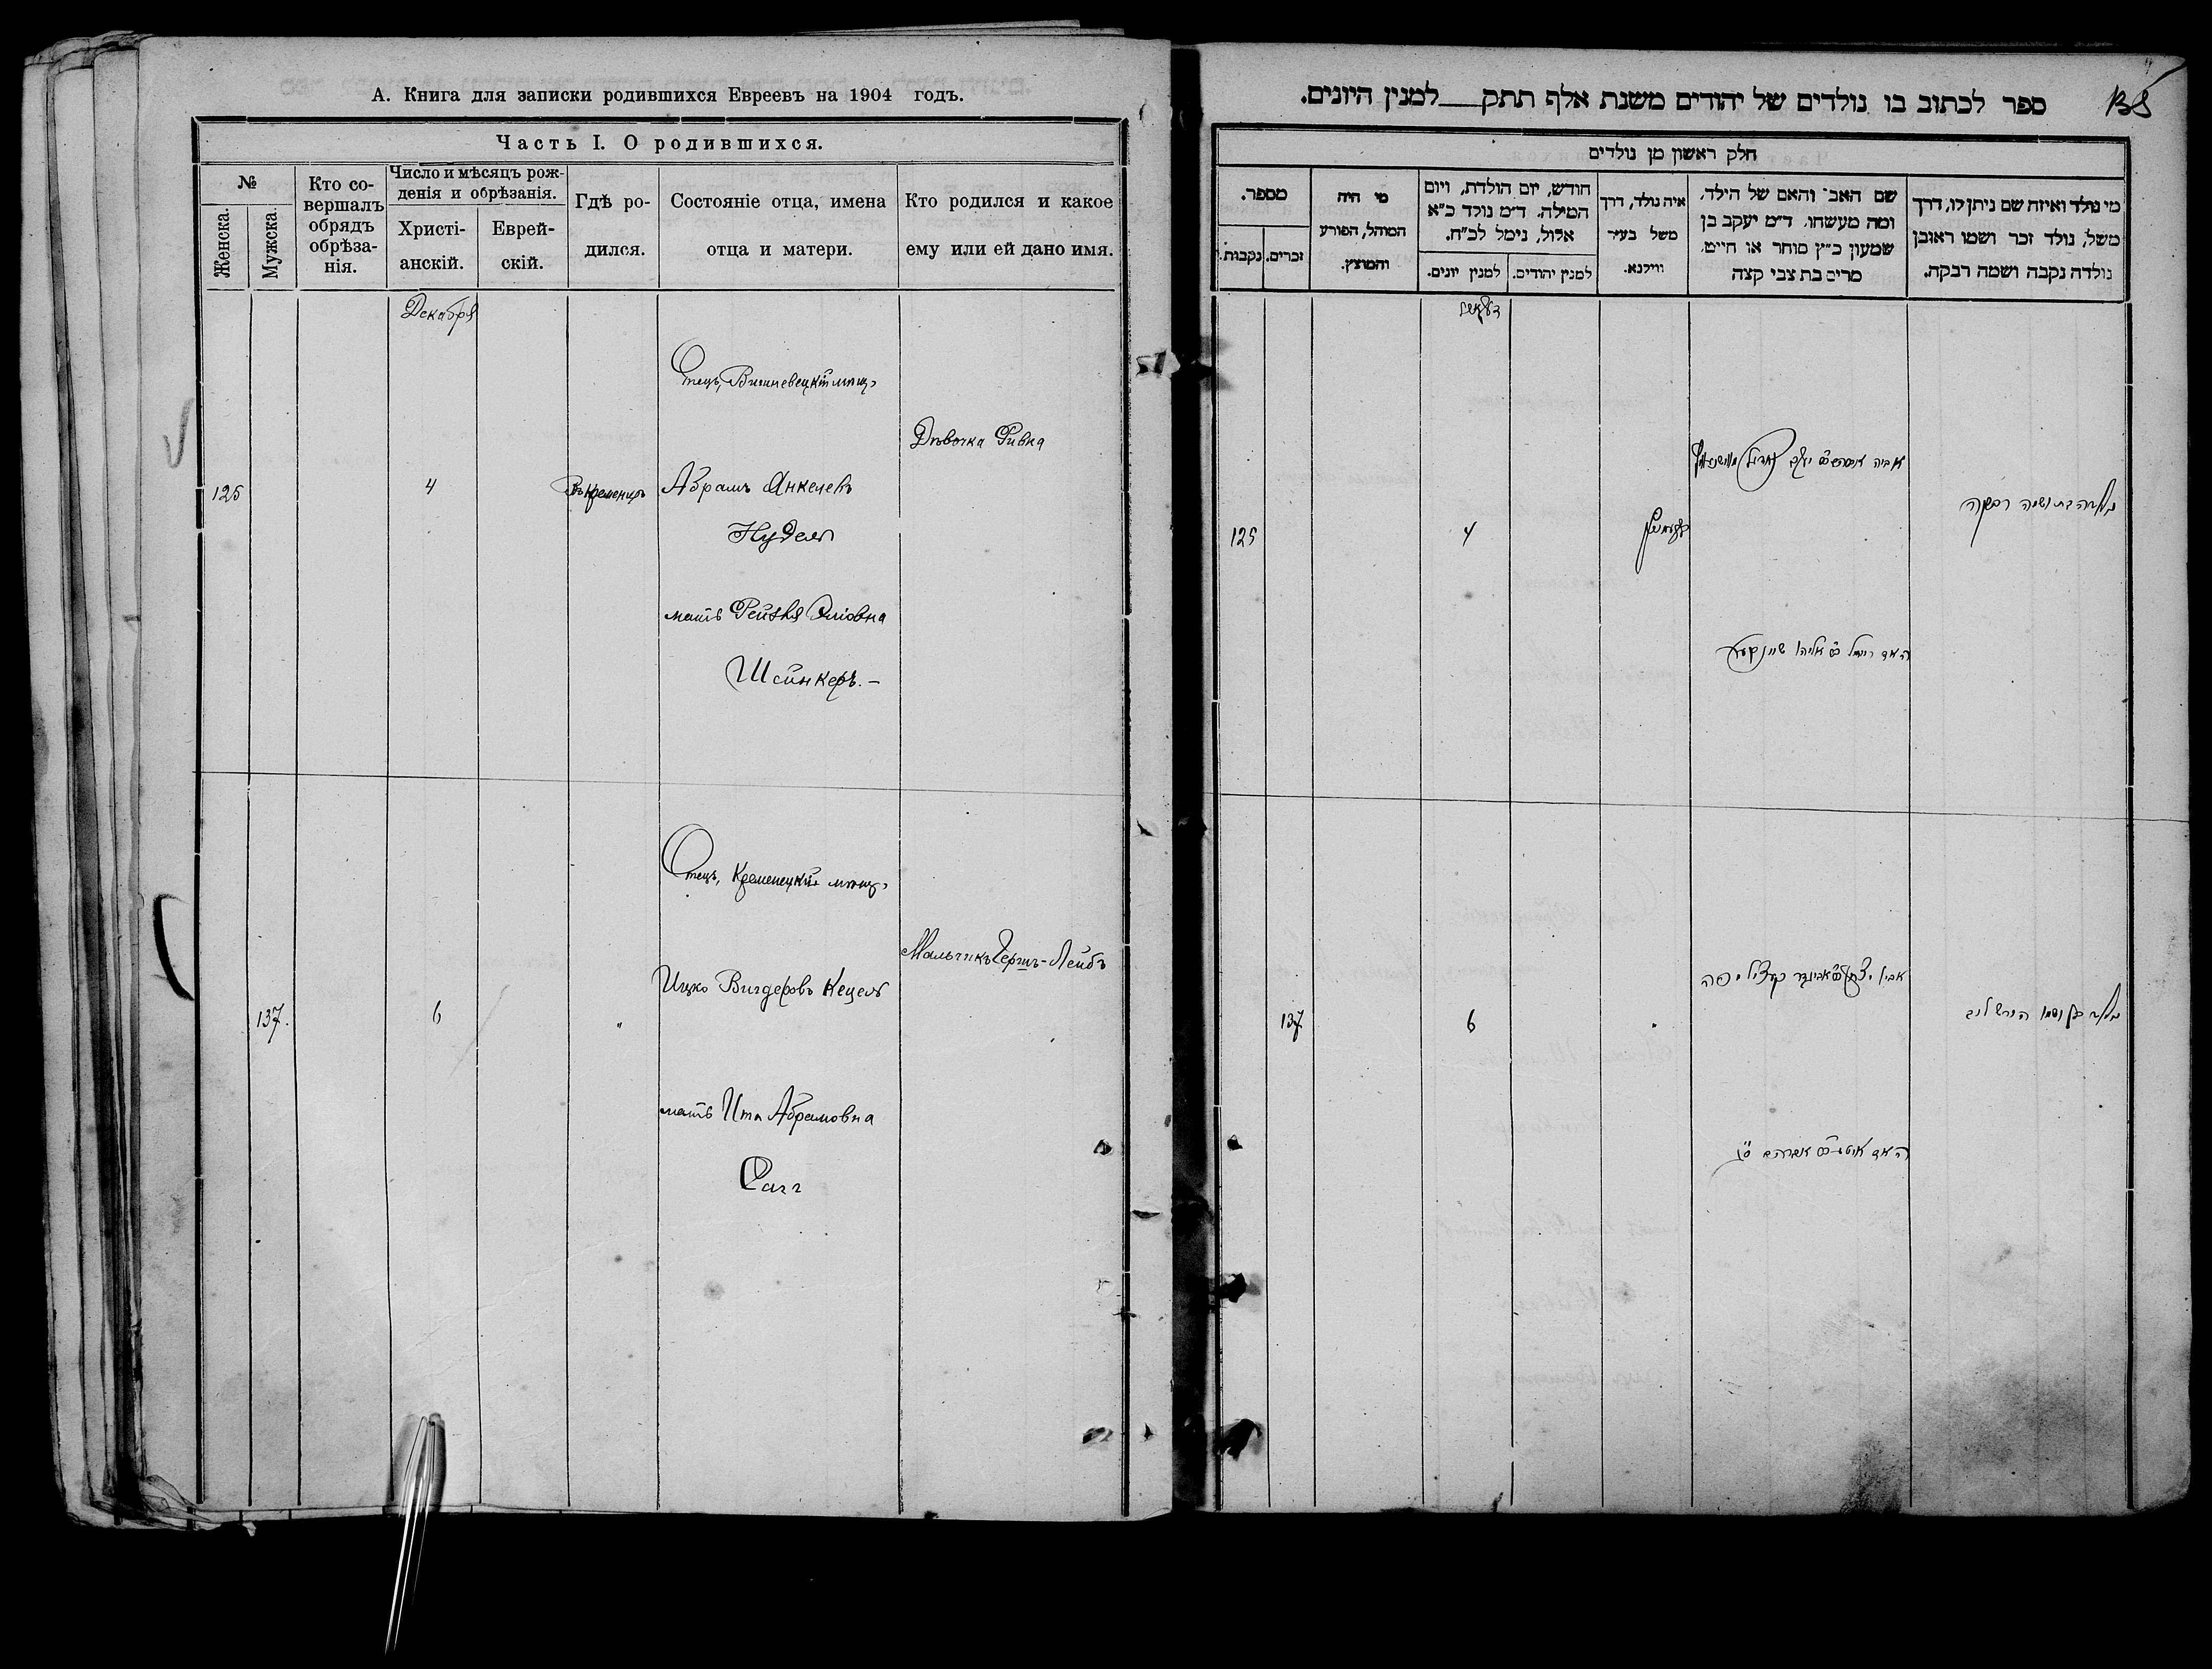 А. Книга для записки родившихся Евреевъ на 1904 годъ.
Часть I. О родившихся.
№
Женска.
Мужска.
Кто со-
вершалъ
обрядъ
обрѣза-
нія.
Число и мѣсяцъ рож-
денія и обрѣзанія.
Христі-
анскій.
Еврей-
скій.
Гдѣ ро-
дился.
Состояніе отца, имена
отца и матери.
Кто родился и какое
ему или ей дано имя.
Декабря
Отецъ, Вишневецкій мѣщ.
Дѣвочка Ривка
125
4
Въ Кременцѣ
Абрамъ Янкелевъ
Нудель
мать Рейзя Эліовна
Шейнкеръ. –
Отецъ, Кременецкій мѣщ.
Мальчикъ Герш-Лейбъ
Ицко Вигдоровъ Кецель
137.
6
"
мать Ита Абрамовна
Сагг
ספר לכתוב בו נולדים של יהודים משנת אלף תתק למנין היונים.
חלק ראשון מן נולדים
מי נולד ואיזה שם ניתן לו, דרך
משל, נולד זכר ושמו ראובן
נולדה נקבה ושמה רבקה.
שם האב והאם של הילד,
ומה מעשהו. ד״מ יעקב בן
שמעון כ״ץ סוחר או חייט.
מרים בת צבי קצה
איה נולד, דרך
משל בעיר
ווילנא.
חודש, יום הולדת, ויום
המילה. ד״מ נולד כ״א
אלול, נימל לכ״ח.
למנין יהודים.
למנין יונים.
מי היה
המוהל, הפורע
והמוצץ.
מספר.
זכרים.
נקבות.
נולדה בת ושמה רבקה
125
4
האם רייזל בת אליהו שיינקער
137
6
נולד בן ושמו הירש ליב